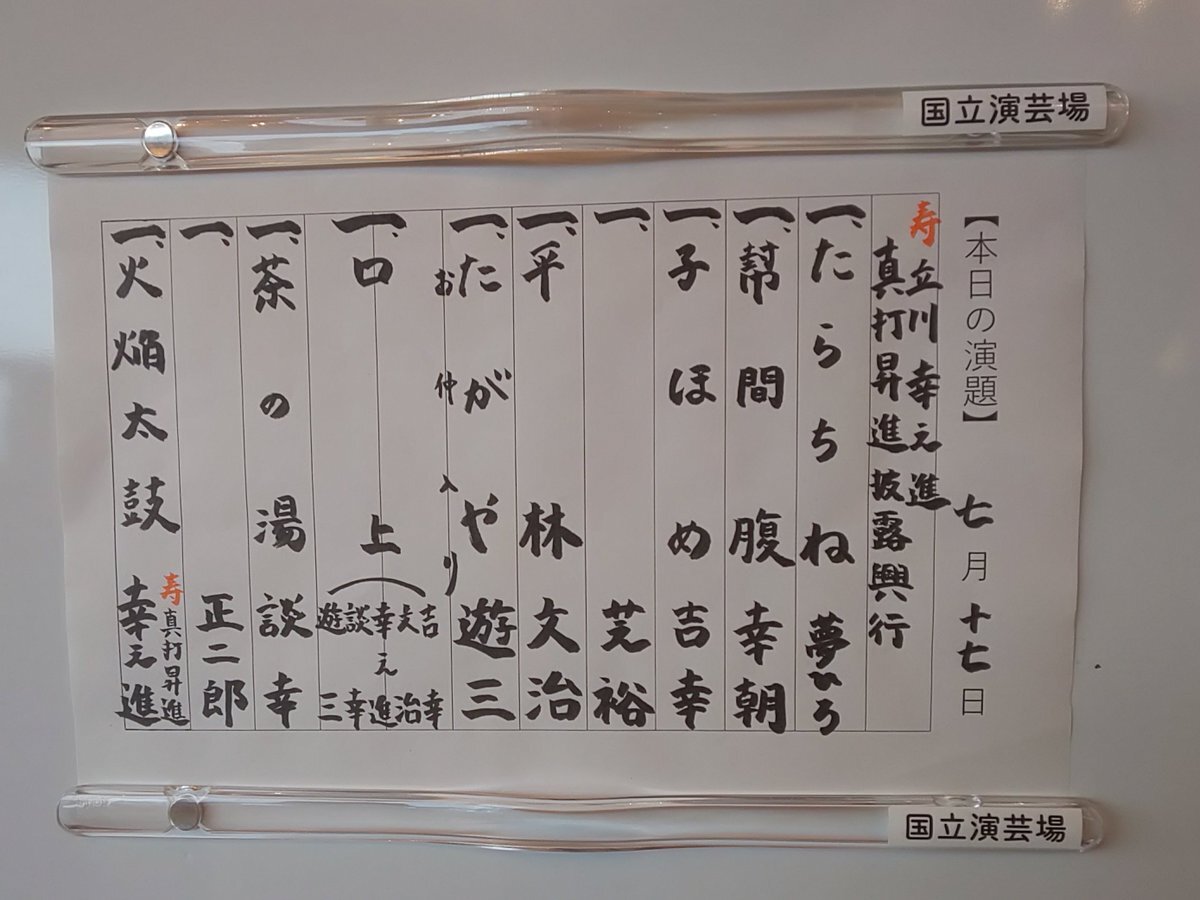 国立演芸場
【本日の演題】 七月十七日
寿 立川幸之進
真打昇進披露興行
一、たらちね 夢ひろ
一、幇間腹 幸朝
一、子ほめ 吉幸
一、 芸裕
一、平林 文治
一、たがや 遊三
お仲入り
一、口上
吉幸
文治
幸之進
談幸
遊三
一、茶の湯 談幸
一、 正二郎
一、火焔太鼓 寿 真打昇進 幸之進
国立演芸場